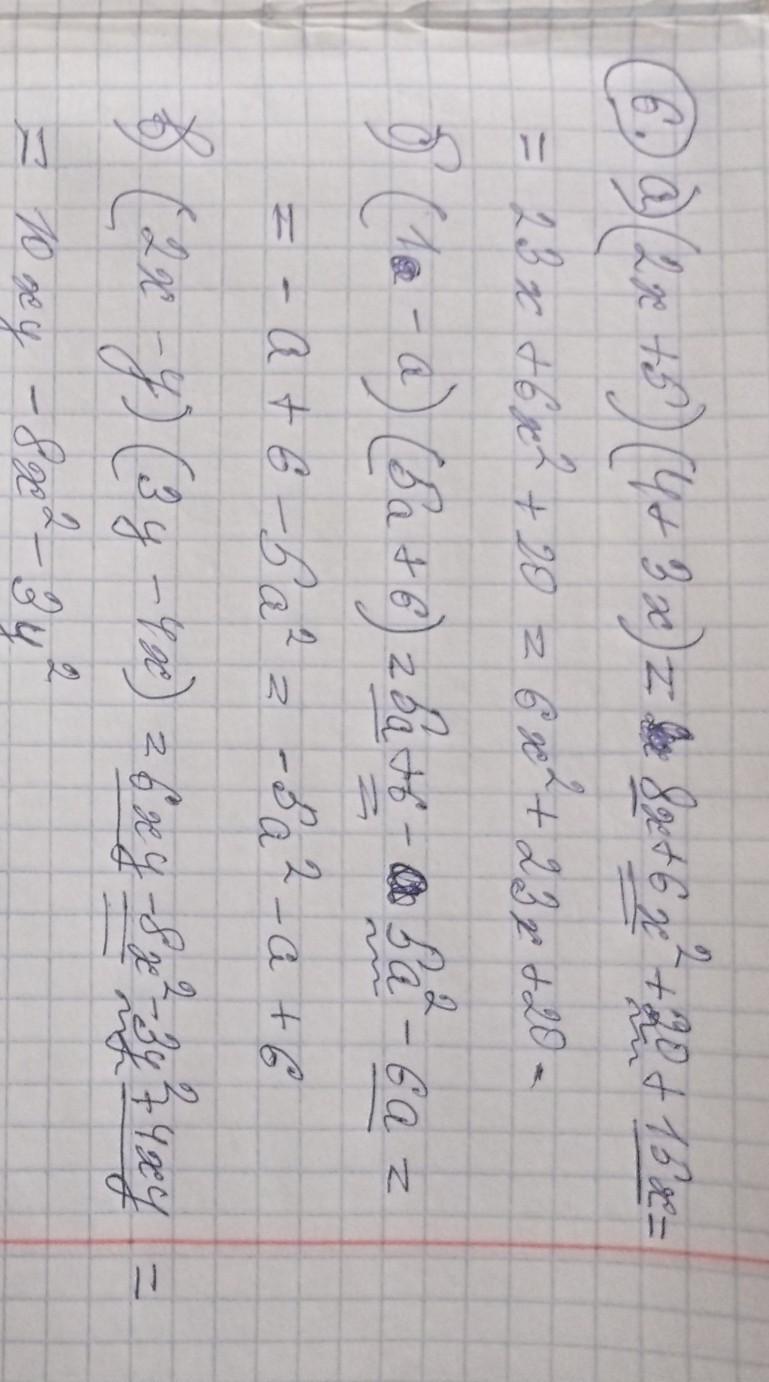 6. а) (2x+5)(4+3x)= 8x+6x²+20+15x=
= 23x+6x²+20 = 6x²+23x+20-
б) (1-a)(5a+6)=5a+6-5a²-6a=
= -a+6-5a² = -5a²-a+6
в) (2x-y)(3y-4x)=6xy-8x²-3y²+4xy=
= 10xy-8x²-3y²